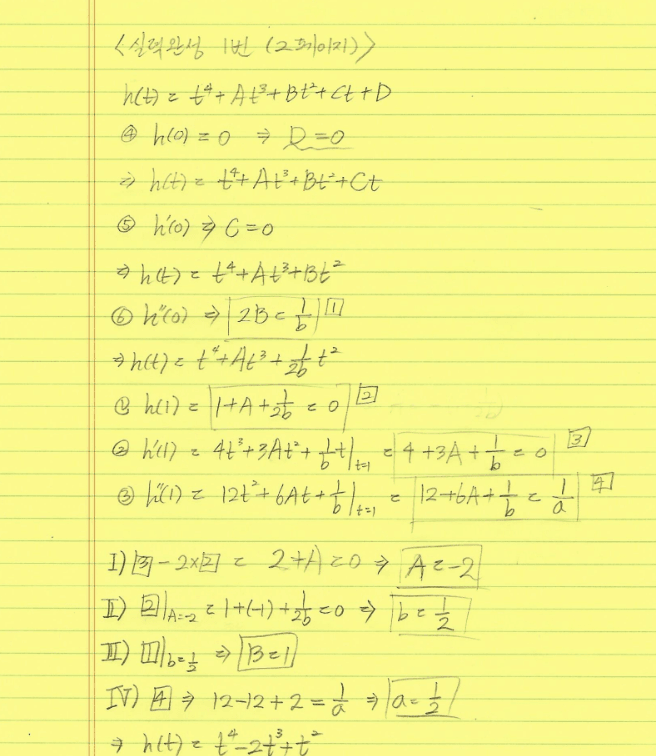 <실력완성 1번 (2페이지)>
h(t) = t⁴+At³+Bt²+Ct+D
④ h(0) = 0 ⇒ D=0
⇒ h(t) = t⁴+At³+Bt²+Ct
⑤ h'(0) ⇒ C=0
⇒ h(t) = t⁴+At³+Bt²
⑥ h''(0) ⇒ 2B = 1/b [1]
⇒ h(t) = t⁴+At³+1/2b t²
① h(1) = 1+A+1/2b = 0 [2]
② h'(1) = 4t³+3At²+1/b t|t=1 = 4+3A+1/b = 0 [3]
③ h''(1) = 12t²+6At+1/b|t=1 = 12+6A+1/b = 1/a [4]
I) [3]-2×[2] = 2+A=0 ⇒ A=-2
II) [2]|A=-2 = 1+(-1)+1/2b=0 ⇒ b=1/2
III) [1]|b=1/2 ⇒ B=1
IV) [4] ⇒ 12-12+2=1/a ⇒ a=1/2
⇒ h(t) = t⁴-2t³+t²